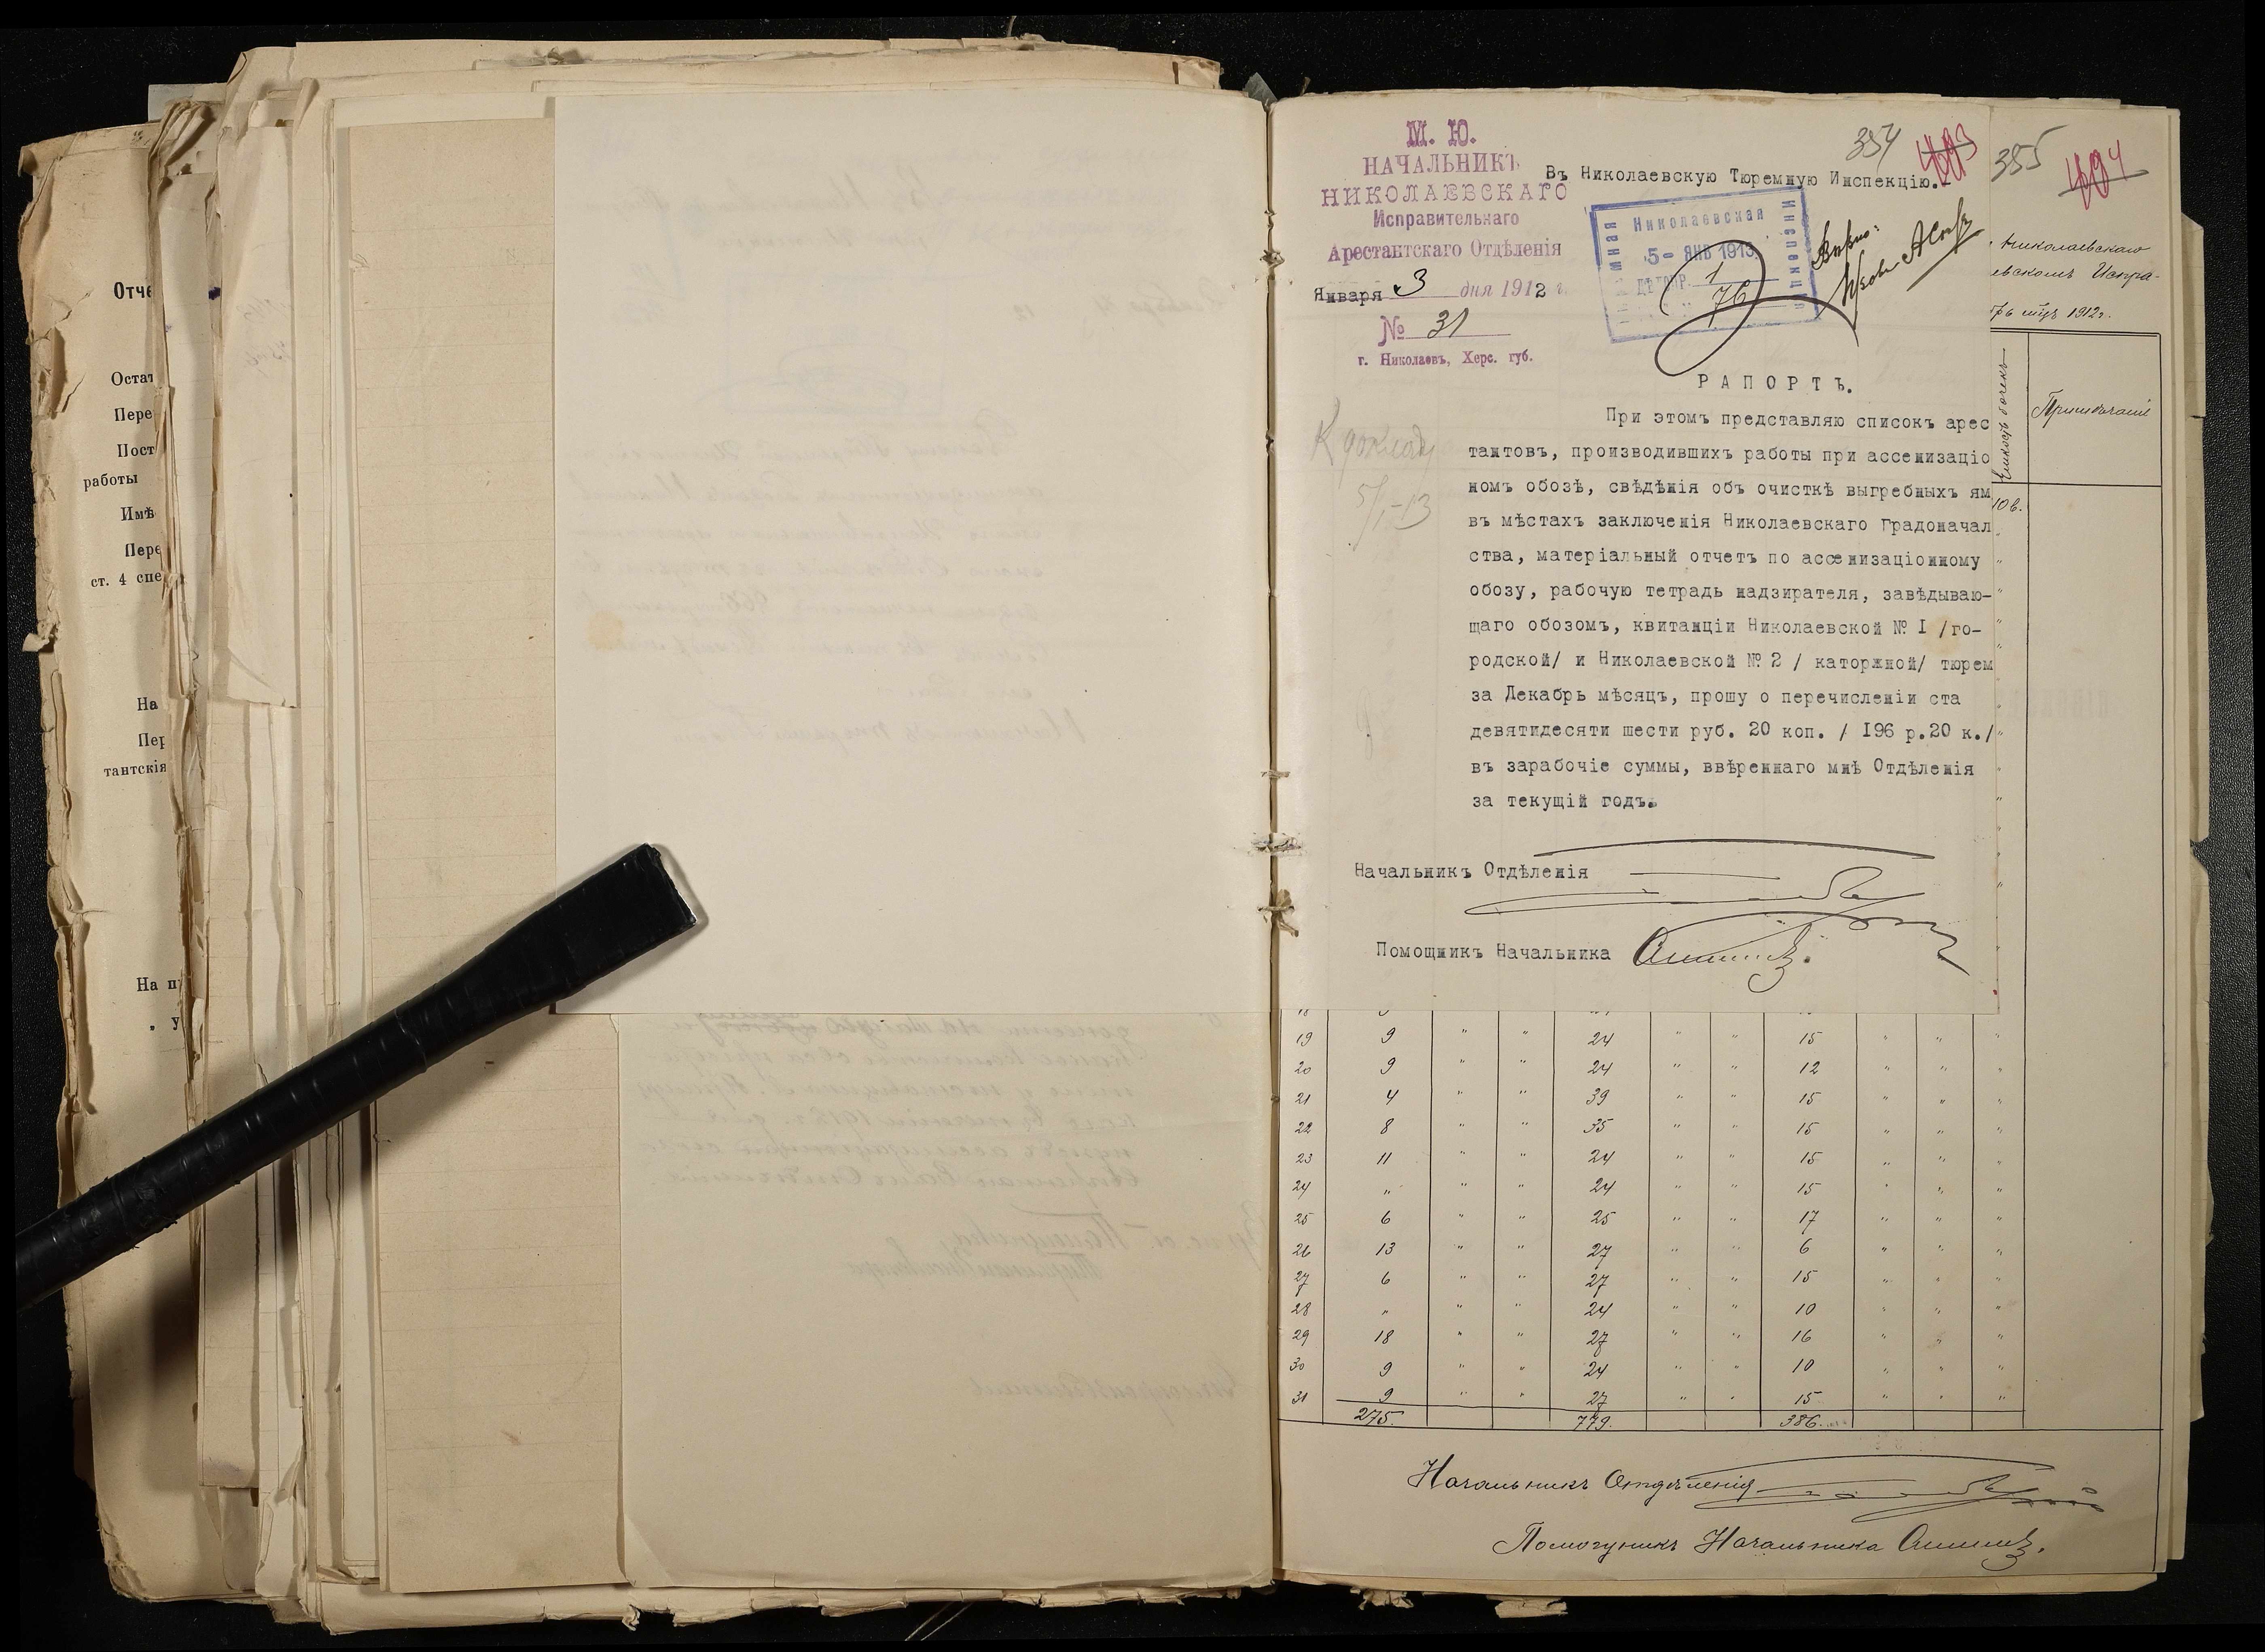 Отче
Остат
Пере
Пост
работы
Имѣ
Пере
ст. 4 спе
На
Пер
тантскія
На п
" у
М. Ю.
НАЧАЛЬНИКЪ
НИКОЛАЕВСКАГО
Исправительнаго
Арестантскаго Отдѣленія
Января 3 дня 1912 г.
№ 31
г. Николаевъ, Херс. губ.
354
Въ Николаевскую Тюремную Инспекцію.
Николаевская
5- ЯНВ 1913
1
76
Тюремная
Инспекція
Вѣрно:
К докладу
5/I-13
РАПОРТЪ.
При этомъ представляю списокъ арес
тантовъ, производившихъ работы при ассенизаціо
номъ обозѣ, свѣдѣнія объ очисткѣ выгребныхъ ям
въ мѣстахъ заключенія Николаевскаго Градоначал
ства, матеріальный отчетъ по ассенизаціонному
обозу, рабочую тетрадь надзирателя, завѣдываю-
щаго обозомъ, квитанціи Николаевской № I /го-
родской/ и Николаевской № 2 / каторжной/ тюрем
за Декабрь мѣсяцъ, прошу о перечисленіи ста
девятидесяти шести руб. 20 коп. / I96 р.20 к./
въ зарабочіе суммы, ввѣреннаго мнѣ Отдѣленія
за текущій годъ.
Начальникъ Отдѣленія
Помощникъ Начальника
355
Николаевскаго
евскомъ Испра-
брь мцъ 1912г.
Емкость бочекъ
Примѣчаніе
10 в.
19 9 " " 24 " " 15 " " "
20 9 " " 24 " " 12 " " "
21 4 " " 39 " " 15 " " "
22 8 " " 35 " " 15 " " "
23 11 " " 24 " " 15 " " "
24 " " " 24 " " 15 " " "
25 6 " " 25 " " 17 " " "
26 13 " " 27 " " 6 " " "
27 6 " " 27 " " 15 " " "
28 " " " 24 " " 10 " " "
29 18 " " 27 " " 16 " " "
30 9 " " 24 " " 10 " " "
31 9 " " 27 " " 15 " " "
275. 779. 386.
Начальникъ Отдѣленія
Помощникъ Начальника